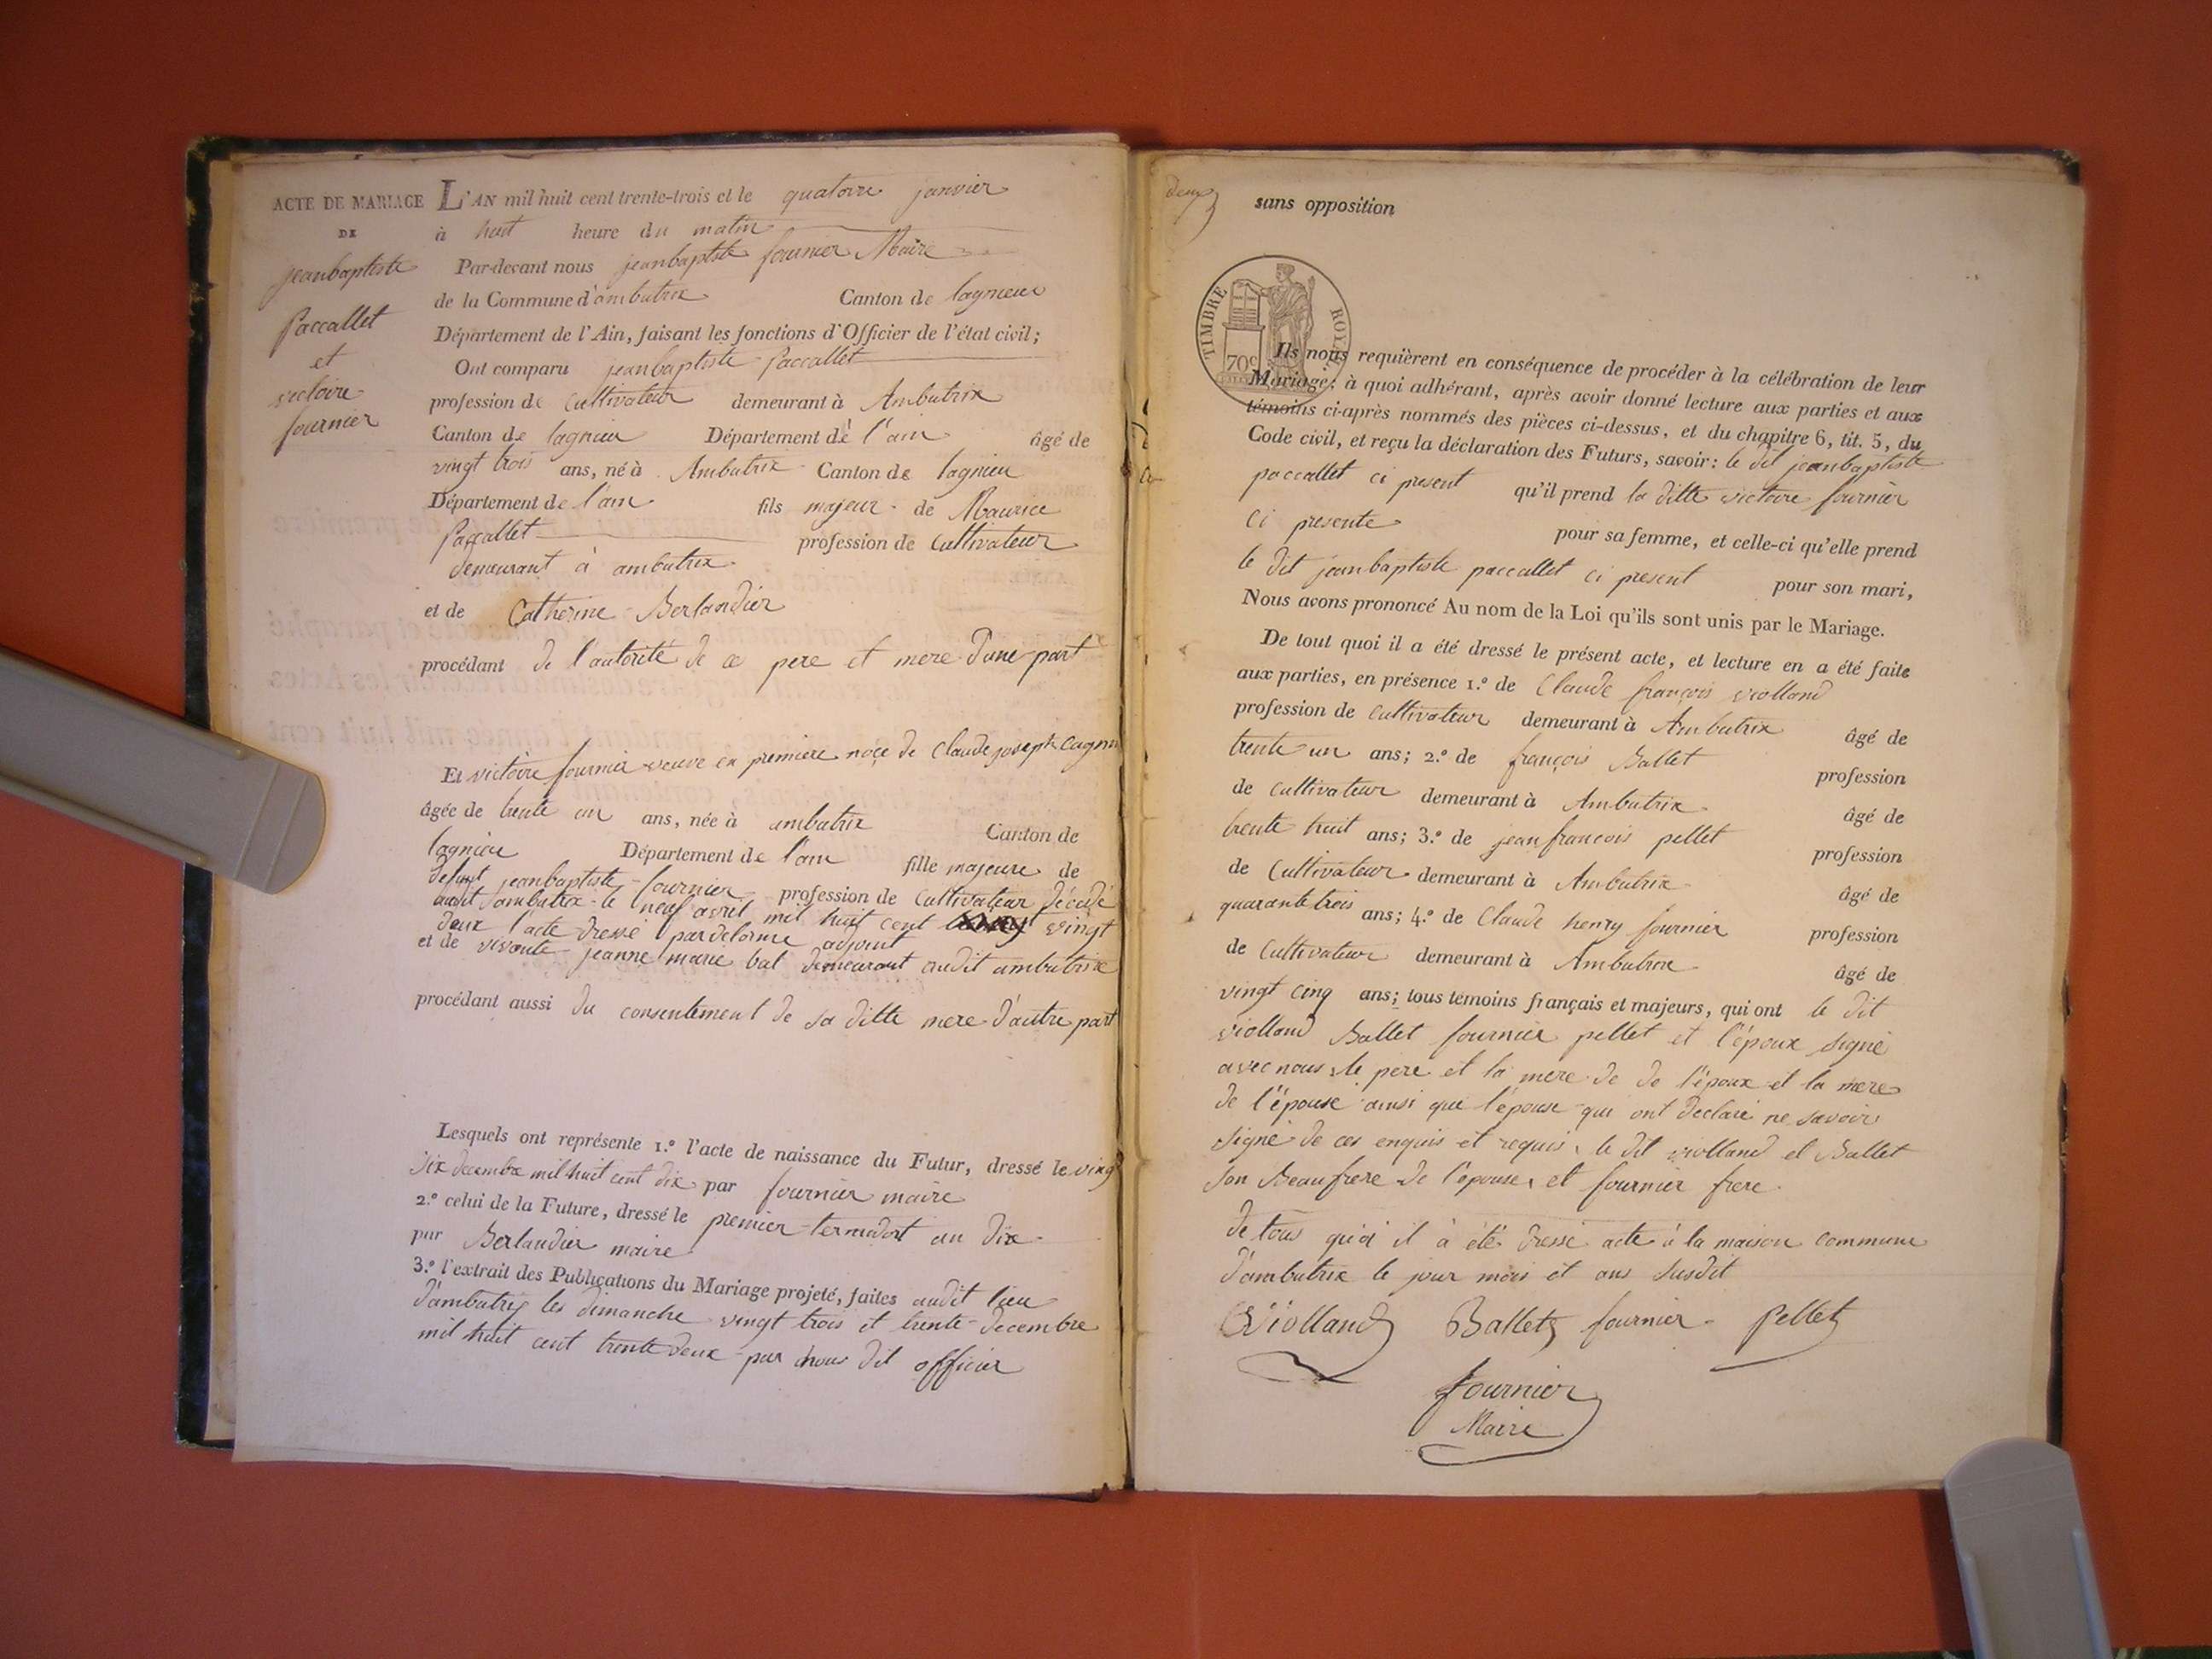 ACTE DE MARIAGE
DE
jeanbaptiste
Paccallet
et
victoire
fournier
L'AN mil huit cent trente-trois et le quatorze janvier
à huit heure du matin
Par-devant nous jeanbaptiste fournier Maire
de la Commune d'ambutrix Canton de lagnieu
Département de l'Ain, faisant les fonctions d'Officier de l'état civil;
Ont comparu jeanbaptiste paccallet
profession de Cultivateur demeurant à Ambutrix
Canton de lagnieu Département de l'ain âgé de
vingt trois ans, né à Ambutrix Canton de lagnieu
Département de l'ain fils majeur de Maurice
Paccallet profession de Cultivateur
demeurant à ambutrix
et de Catherine Berlandier
procédant de l'autorité de ce pere et mere d'une part
Et victoire fournier veuve en premiere noçe de Claude joseph
âgée de trente un ans, née à ambutrix Canton de
lagnieu Département de l'ain fille majeure de
defunt jeanbaptiste fournier profession de Cultivateur décédé
audit d'ambutrix le neuf avril mil huit cent vingt
deux l'acte dressé par delorme adjoint
et de vivante jeanne marie bal demeurant audit ambutrix
procédant aussi du consentement de sa ditte mere d'autre part
Lesquels ont représente 1.º l'acte de naissance du Futur, dressé le vingt
six decembre mil huit cent dix par fournier maire
2.º celui de la Future, dressé le premier termidort an dix
par Berlandier maire
3.º l'extrait des Publications du Mariage projeté, faites audit lieu
d'ambutrix les dimanche vingt trois et trente decembre
mil huit cent trente deux par nous dit officier
deux
sans opposition
TIMBRE ROYAL
70c
Ils nous requièrent en conséquence de procéder à la célébration de leur
Mariage: à quoi adhérant, après avoir donné lecture aux parties et aux
témoins ci-après nommés des pièces ci-dessus, et du chapitre 6, tit. 5, du
Code civil, et reçu la déclaration des Futurs, savoir: le dit jeanbaptiste
paccallet ci present qu'il prend la ditte victoire fournier
ci presente pour sa femme, et celle-ci qu'elle prend
le dit jeanbaptiste paccallet ci present pour son mari,
Nous avons prononcé Au nom de la Loi qu'ils sont unis par le Mariage.
De tout quoi il a été dressé le présent acte, et lecture en a été faite
aux parties, en présence 1.º de Claude françois violland
profession de cultivateur demeurant à Ambutrix âgé de
trente un ans; 2.º de françois Ballet profession
de cultivateur demeurant à Ambutrix âgé de
trente huit ans; 3.º de jean francois pellet profession
de Cultivateur demeurant à Ambutrix âgé de
quarante trois ans; 4.º de Claude henry fournier profession
de Cultivateur demeurant à Ambutrix âgé de
vingt cinq ans; tous témoins français et majeurs, qui ont le dit
violland Ballet fournier pellet et l'époux signé
avec nous le pere et la mere de de l'époux et la mere
de l'épouse ainsi que l'épouse qui ont declaré ne savoir
signé de ces enquis et requis, le dit violland et Ballet
son Beaufrere de l'epouse, et fournier frere
de tous quoi il à été dressé acte à la maison commune
d'ambutrix le jour mois et ans susdit
Violland Ballet fournier Pellet
fournier
Maire